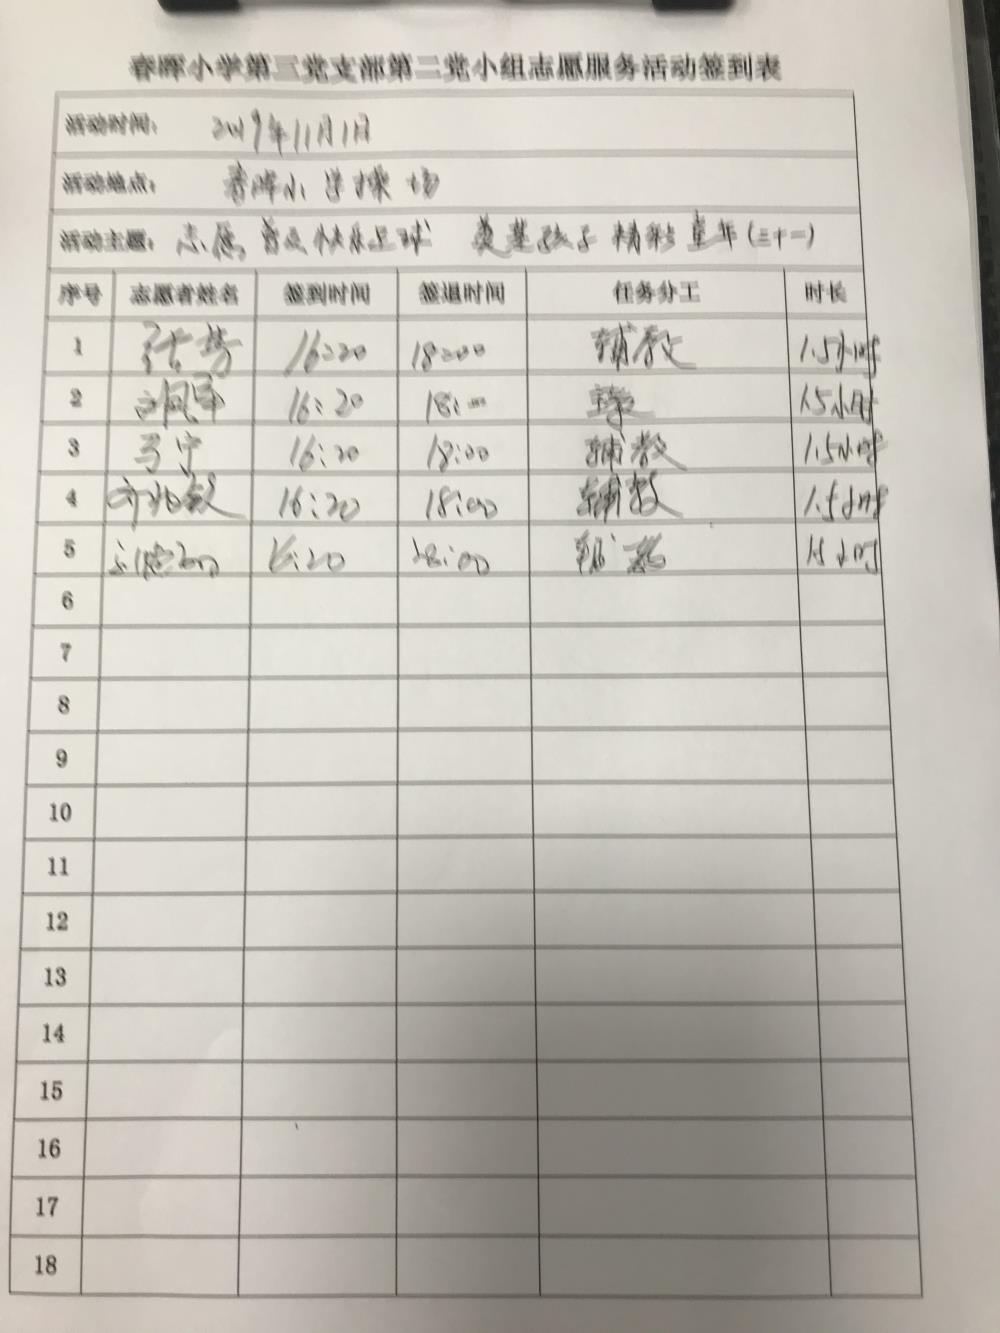 春晖小学第三党支部第二党小组志愿服务活动签到表
活动时间： 2019年11月1日
活动地点： 春晖小学操场
活动主题： 志愿普及快乐足球 奠基孩子精彩童年（三十一）
序号 志愿者姓名 签到时间 签退时间 任务分工 时长
1 张芳 16:20 18:00 辅教 1.5小时
2 16:20 18:00 1.5小时
3 马宁 16:20 18:00 辅教 1.5小时
4 16:20 18:00 辅教 1.5小时
5 16:20 18:00 辅教 1.5小时
6
7
8
9
10
11
12
13
14
15
16
17
18